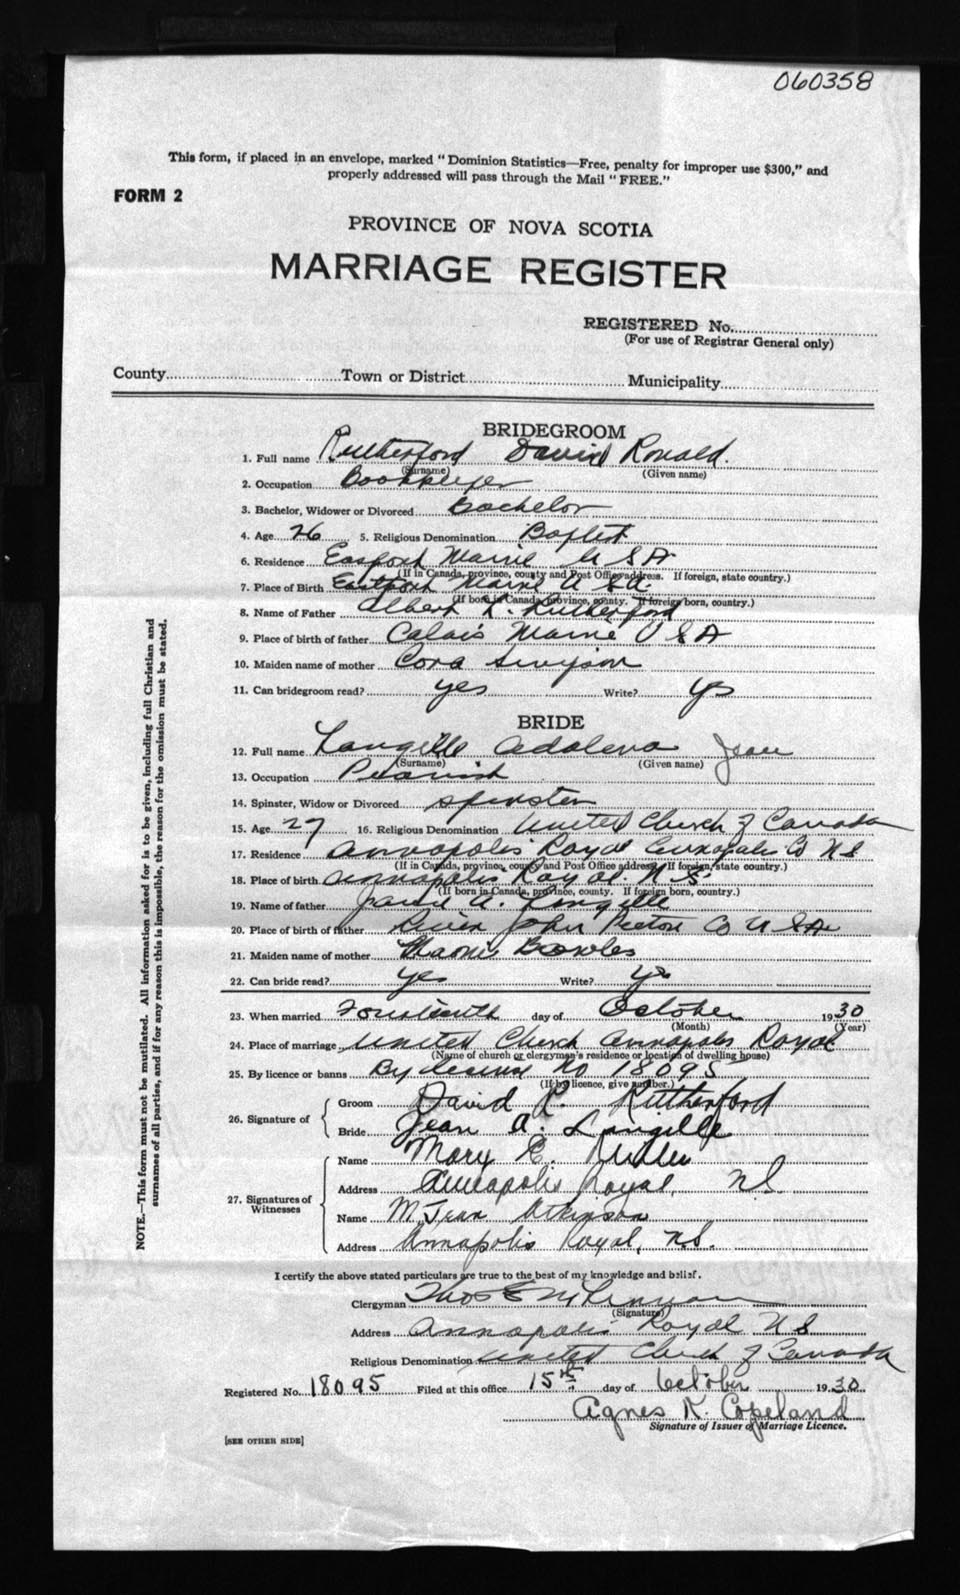 060358
This form, if placed in an envelope, marked "Dominion Statistics—Free, penalty for improper use $300," and
properly addressed will pass through the Mail "FREE."
FORM 2
PROVINCE OF NOVA SCOTIA
MARRIAGE REGISTER
REGISTERED No.
(For use of Registrar General only)
County Town or District Municipality
BRIDEGROOM
1. Full name Rutherford David Ronald.
(Surname) (Given name)
2. Occupation Bookkeeper
3. Bachelor, Widower or Divorced Bachelor
4. Age 26 5. Religious Denomination Baptist
6. Residence Maine U S A
(If in Canada, province, county and Post Office address. If foreign, state country.)
7. Place of Birth Eastport Maine U.S.A.
(If born in Canada, province, county. If foreign born, country.)
8. Name of Father Albert Rutherford
9. Place of birth of father Calais Maine U S A
10. Maiden name of mother Cora
11. Can bridegroom read? yes Write? yes
BRIDE
12. Full name Langille Adalena Jean
(Surname) (Given name)
13. Occupation
14. Spinster, Widow or Divorced spinster
15. Age 27 16. Religious Denomination United Church of Canada
17. Residence Annapolis Royal Annapolis Co N S
(If in Canada, province, county and Post Office address. If foreign, state country.)
18. Place of birth Annapolis Royal N S
(If born in Canada, province, county. If foreign born, country.)
19. Name of father A. Langille
20. Place of birth of father River John Co
21. Maiden name of mother Bowles
22. Can bride read? yes Write? yes
23. When married Fourteenth day of October 1930
(Month) (Year)
24. Place of marriage United Church Annapolis Royal
(Name of church or clergyman's residence or location of dwelling house)
25. By licence or banns By license No 18095
(If by licence, give number.)
26. Signature of
Groom David R. Rutherford
Bride Jean A. Langille
27. Signatures of Witnesses
Name Mary E.
Address Annapolis Royal, N.S.
Name M. Jean Atkinson
Address Annapolis Royal, N.S.
I certify the above stated particulars are true to the best of my knowledge and belief.
Clergyman Thos
(Signature)
Address Annapolis Royal N S
Religious Denomination United Church of Canada
Registered No. 18095 Filed at this office 15th day of October 1930
Agnes K. Copeland
Signature of Issuer of Marriage Licence.
[SEE OTHER SIDE]
NOTE.—This form must not be mutilated. All information asked for is to be given, including full Christian and
surnames of all parties, and if for any reason this is impossible, the reason for the omission must be stated.